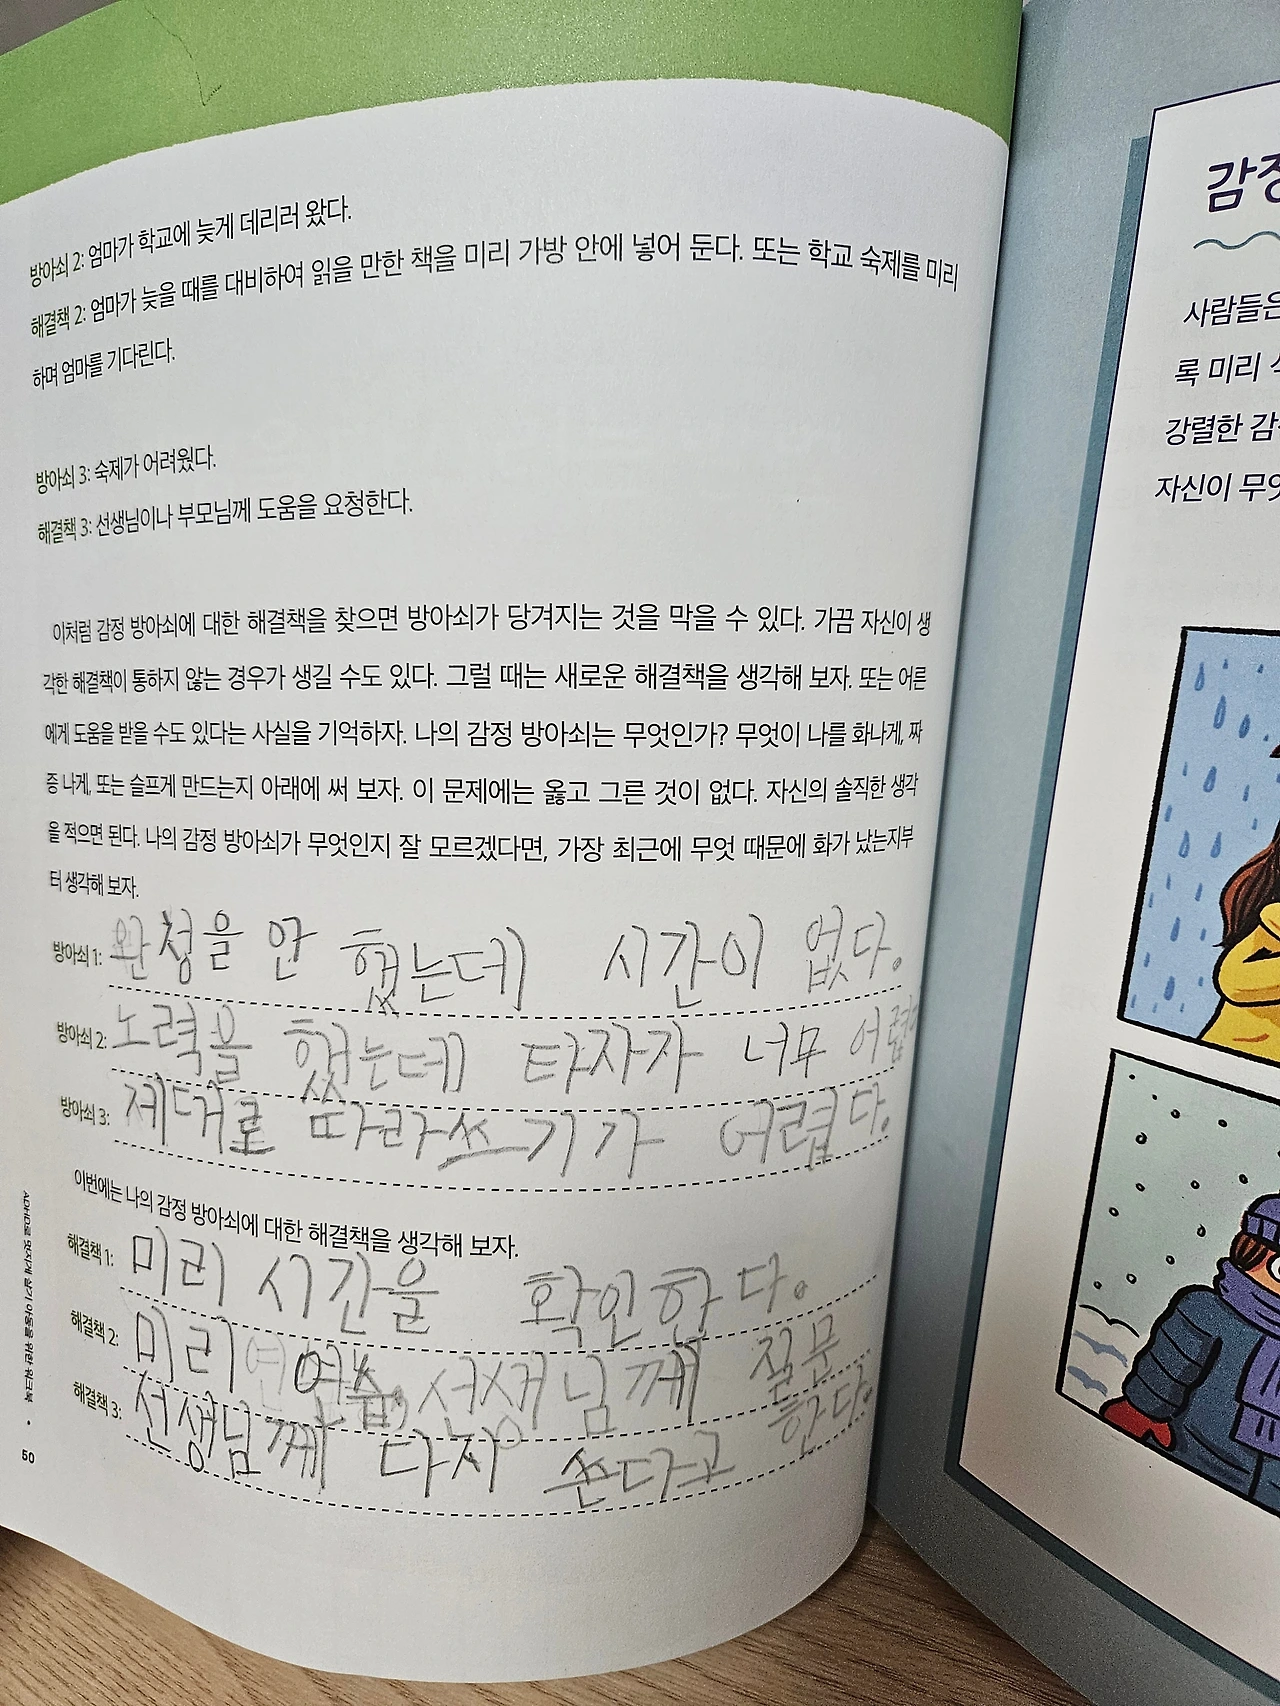 방아쇠 2: 엄마가 학교에 늦게 데리러 왔다.
해결책 2: 엄마가 늦을 때를 대비하여 읽을 만한 책을 미리 가방 안에 넣어 둔다. 또는 학교 숙제를 미리
하며 엄마를 기다린다.
방아쇠 3: 숙제가 어려웠다.
해결책 3: 선생님이나 부모님께 도움을 요청한다.
이처럼 감정 방아쇠에 대한 해결책을 찾으면 방아쇠가 당겨지는 것을 막을 수 있다. 가끔 자신이 생
각한 해결책이 통하지 않는 경우가 생길 수도 있다. 그럴 때는 새로운 해결책을 생각해 보자. 또는 어른
에게 도움을 받을 수도 있다는 사실을 기억하자. 나의 감정 방아쇠는 무엇인가? 무엇이 나를 화나게, 짜
증 나게, 또는 슬프게 만드는지 아래에 써 보자. 이 문제에는 옳고 그른 것이 없다. 자신의 솔직한 생각
을 적으면 된다. 나의 감정 방아쇠가 무엇인지 잘 모르겠다면, 가장 최근에 무엇 때문에 화가 났는지부
터 생각해 보자.
방아쇠 1: 완청을 안 했는데 시간이 없다.
방아쇠 2: 노력을 했는데 타자가 너무
방아쇠 3: 제대로 따라쓰기가 어렵다.
이번에는 나의 감정 방아쇠에 대한 해결책을 생각해 보자.
해결책 1: 미리 시간을 확인한다.
해결책 2: 미리 연습, 선생님께 질문
한다.
해결책 3: 선생님께 다시 쓴다고
ADHD로 멋지게 살기 아동을 위한 워크북 •
50
감정
사람들은
록 미리
강렬한
자신이